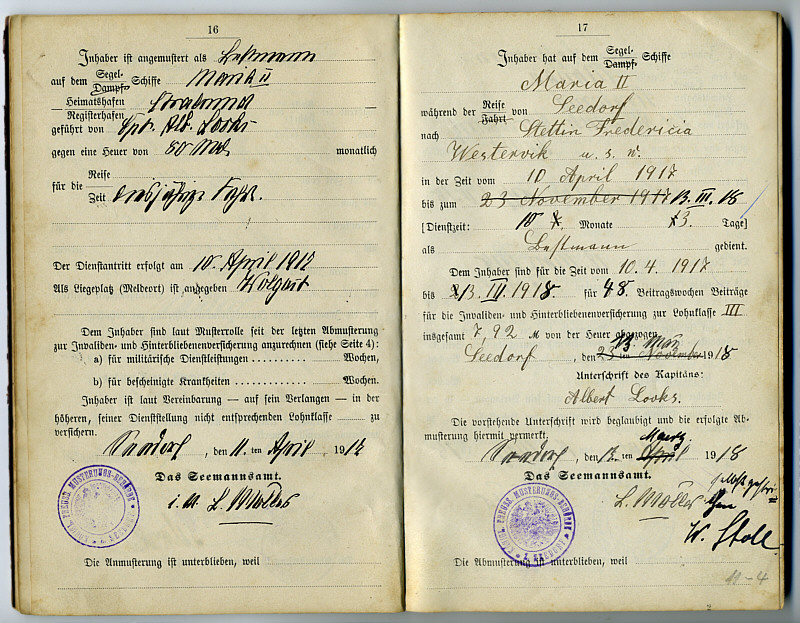 16
Inhaber ist angemustert als Bestmann
auf dem Segel- Dampf- Schiffe Maria II
Heimatshafen Stralsund
Registerhafen
geführt von Cptn. Alb. Looks
gegen eine Heuer von 80 Mk monatlich
für die Reise
Zeit diesjährige Fahrt.
Der Dienstantritt erfolgt am 10. April 1917
Als Liegeplatz (Meldeort) ist angegeben Wolgast
Dem Inhaber sind laut Musterrolle seit der letzten Abmusterung
zur Invaliden- und Hinterbliebenenversicherung anzurechnen (siehe Seite 4):
a) für militärische Dienstleistungen . . . . . . . . . . . . Wochen,
b) für bescheinigte Krankheiten . . . . . . . . . . . . Wochen.
Inhaber ist laut Vereinbarung — auf sein Verlangen — in der
höheren, seiner Dienststellung nicht entsprechenden Lohnklasse zu
versichern.
Seedorf, den 11. ten April 1917
Das Seemannsamt.
i. A. L. Moders
KÖNIGL. PREUSS. MUSTERUNGS-BEHÖRDE * SEEDORF *
Die Anmusterung ist unterblieben, weil
17
Inhaber hat auf dem Segel- Dampf- Schiffe
Maria II
während der Reise Fahrt von Seedorf
nach Stettin Fredericia
Westervik u. s. w.
in der Zeit vom 10 April 1917
bis zum 23 November 1917 13. III. 18
[Dienstzeit: Monate 3. Tage]
als Bestmann gedient.
Dem Inhaber sind für die Zeit vom 10. 4. 1917
bis 13. III. 1918 für 48 Beitragswochen Beiträge
für die Invaliden- und Hinterbliebenenversicherung zur Lohnklasse III
insgesamt 7,92 M von der Heuer abgezogen.
13. März
Seedorf, den 23 ten November 1918
Unterschrift des Kapitäns:
Albert Looks.
Die vorstehende Unterschrift wird beglaubigt und die erfolgte Ab-
musterung hiermit vermerkt.
Maerz
Seedorf, den 12 ten April 1918
Das Seemannsamt.
L. Moders
W. Stoll
KÖNIGL. PREUSS. MUSTERUNGS-BEHÖRDE * SEEDORF *
Die Abmusterung ist unterblieben, weil
11-4
2